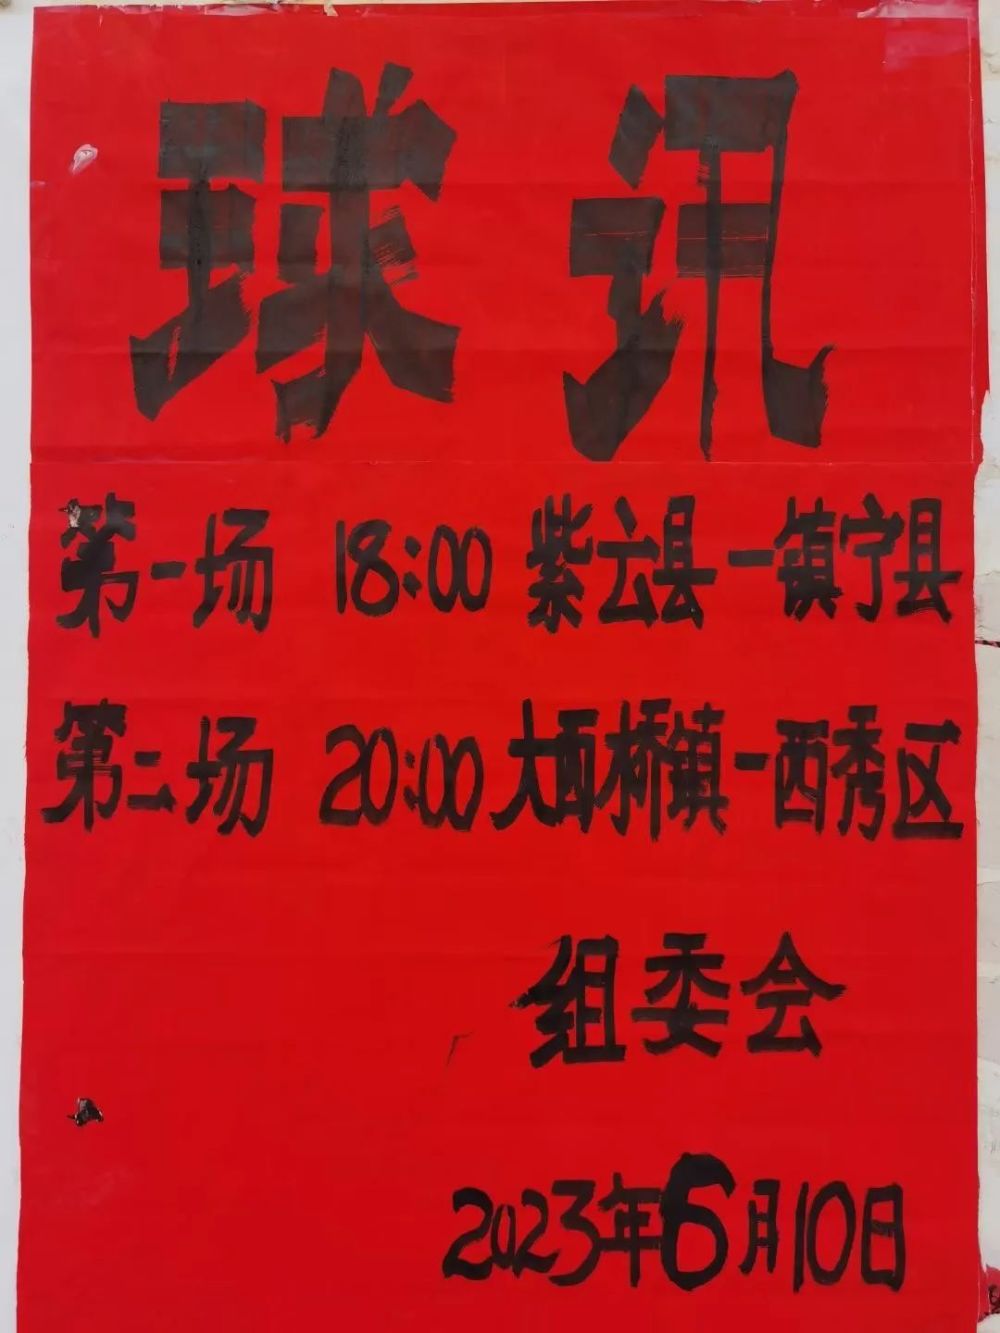 球讯
第一场 18:00 紫云县—镇宁县
第二场 20:00 大西桥镇—西秀区
组委会
2023年6月10日